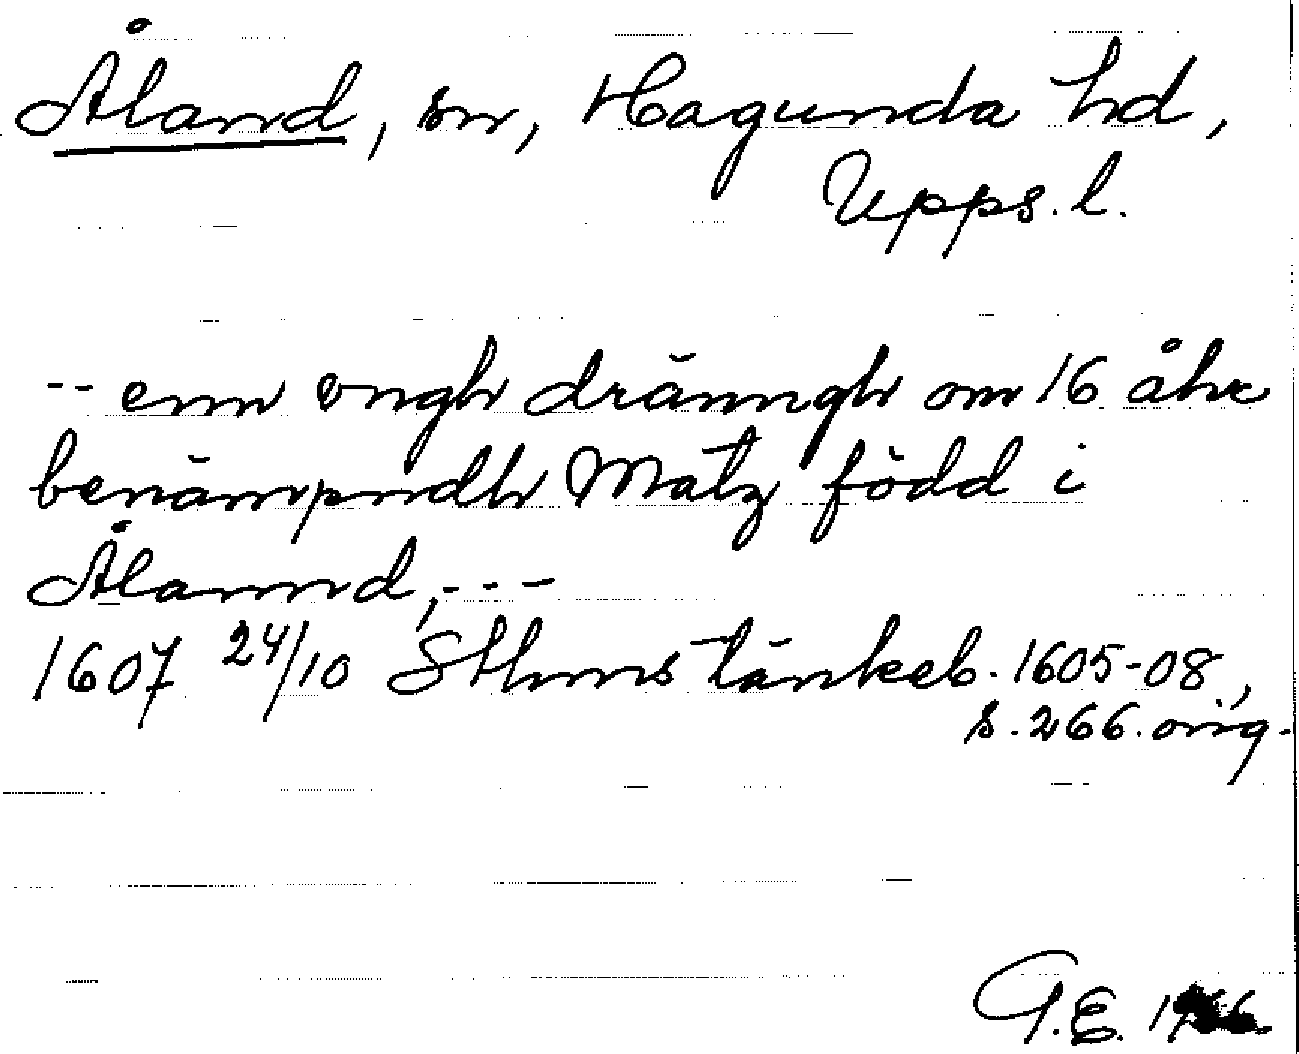 Åland, sn, Hagunda hd,
Upps. l.
-- enn ongh dränngh om 16 åhr
benämpndh Matz född i
Ålannd, - - -
1607 24/10 Sthms tänkeb. 1605-08,
s. 266. orig.
G.E.